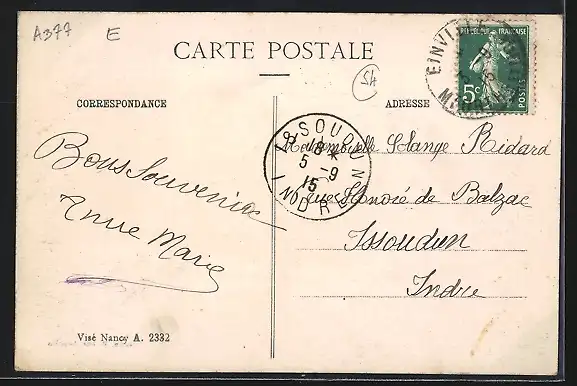 A377
E
CARTE POSTALE
SA
CORRESPONDANCE
ADRESSE
REPUBLIQUE FRANÇAISE
5c
POSTES
EINVILLE
ISSOUDUN
18 *
5 -9
15
INDRE
Bons Souvenirs
Anne Marie
Mademoiselle Solange Ridard
rue Honoré de Balzac
Issoudun
Indre
Visé Nancy A. 2332